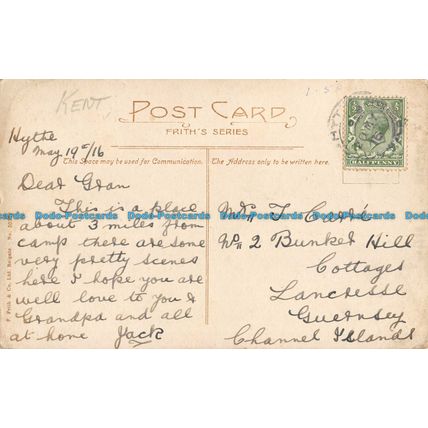 KENT
POST CARD
FRITH'S SERIES
Hythe
May 19th/16
This Space may be used for Communication.
The Address only to be written here.
HALF PENNY
Dear Gran
This is a place
about 3 miles from
camp there are some
very pretty scenes
here I hope you are
well love to you &
Grandpa and all
at home Jack
Mrs T Carré
No 2 Bunker Hill
Cottages
Lancresse
Guernsey
Channel Islands
F. Frith & Co. Ltd. Reigate.
Dodo-Postcards Dodo-Postcards Dodo-Postcards Dodo-Postcards